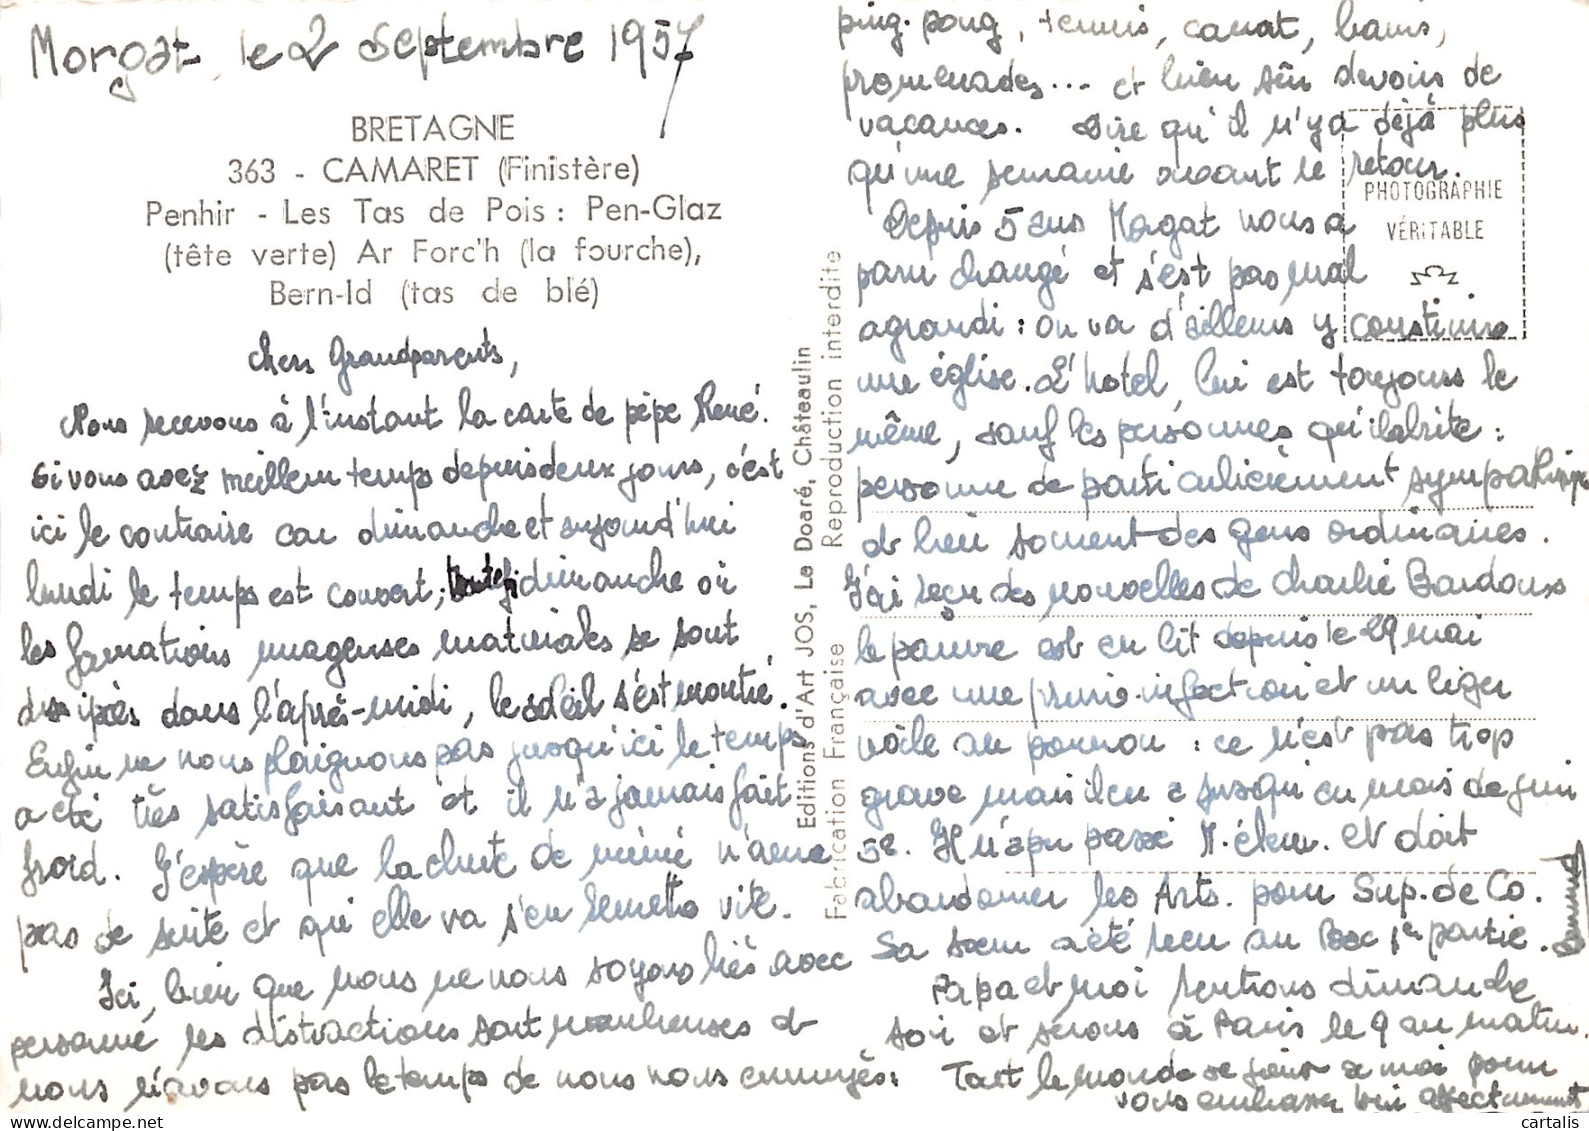 Morgat, le 2 septembre 1957
BRETAGNE
363 - CAMARET (Finistère)
Penhir - Les Tas de Pois : Pen-Glaz
(tête verte) Ar Forc'h (la fourche),
Bern-Id (tas de blé)
Chers Grandparents,
Nous recevons à l'instant la carte de pépé René.
Si vous avez meilleur temps depuis deux jours, c'est
ici le contraire car dimanche et aujourd'hui
lundi le temps est couvert; dimanche où
les formations nuageuses matinales se sont
dissipées dans l'après-midi, le soleil s'est montré.
Enfin ne nous plaignons pas jusqu'ici le temps
a été très satisfaisant et il n'a jamais fait
froid. J'espère que la chute de mémé n'aura
pas de suite et qu'elle va s'en remettre vite.
Ici, bien que nous ne nous soyons liés avec
personne les distractions sont nombreuses et
nous n'avons pas le temps de nous ennuyer :
ping-pong, tennis, canot, bains,
promenades... et bien sûr devoirs de
vacances. Dire qu'il n'y a déjà plus
qu'une semaine avant le retour.
Depuis 5 ans Morgat nous a
paru changé et s'est pas mal
agrandi : on va d'ailleurs y construire
une église. L'hotel, lui est toujours le
même, sauf les personnes qu'il abrite :
personne de particulièrement sympathique
et bien souvent des gens ordinaires.
J'ai reçu des nouvelles de Charlie Bardoux
le pauvre est en lit depuis le 29 mai
avec une primo-infection et un léger
voile au poumon : ce n'est pas trop
grave mais il en a jusqu'en mois de juin
58. Il n'a pu passé M. élem. et doit
abandonner les Arts. pour Sup. de Co.
Sa sœur a été reçu au Bac 1er partie.
Papa et moi rentrons dimanche
soir et serons à Paris le 9 au matin.
Tout le monde se joint à moi pour
vous embrasser bien affectueusement
PHOTOGRAPHIE
VÉRITABLE
Editions d'Art JOS, Le Doaré, Châteaulin
Fabrication Française Reproduction interdite
cartalis